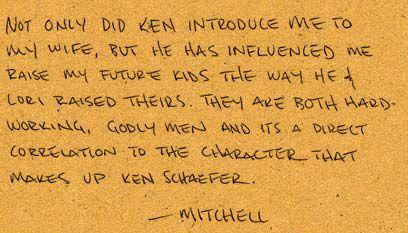 NOT ONLY DID KEN INTRODUCE ME TO
MY WIFE, BUT HE HAS INFLUENCED ME
RAISE MY FUTURE KIDS THE WAY HE &
LORI RAISED THEIRS. THEY ARE BOTH HARD-
WORKING, GODLY MEN AND ITS A DIRECT
CORRELATION TO THE CHARACTER THAT
MAKES UP KEN SCHAEFER.
— MITCHELL